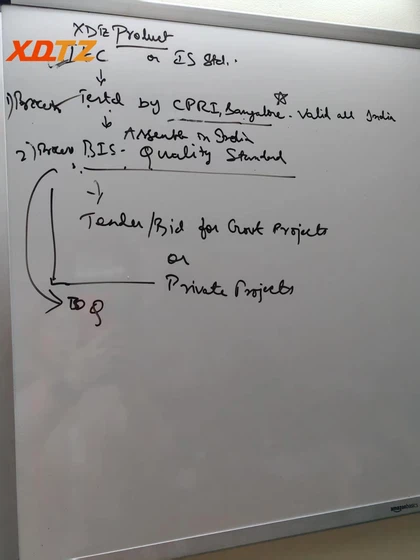 XDTZ Product
XDTZ
IEC or IS Std..
1) Process Tested by CPRI, Bangalore. Valid all India
Assemble in India
2) Process BIS - Quality Standard
Tender/Bid for Govt Projects
or
Private Projects
BOQ